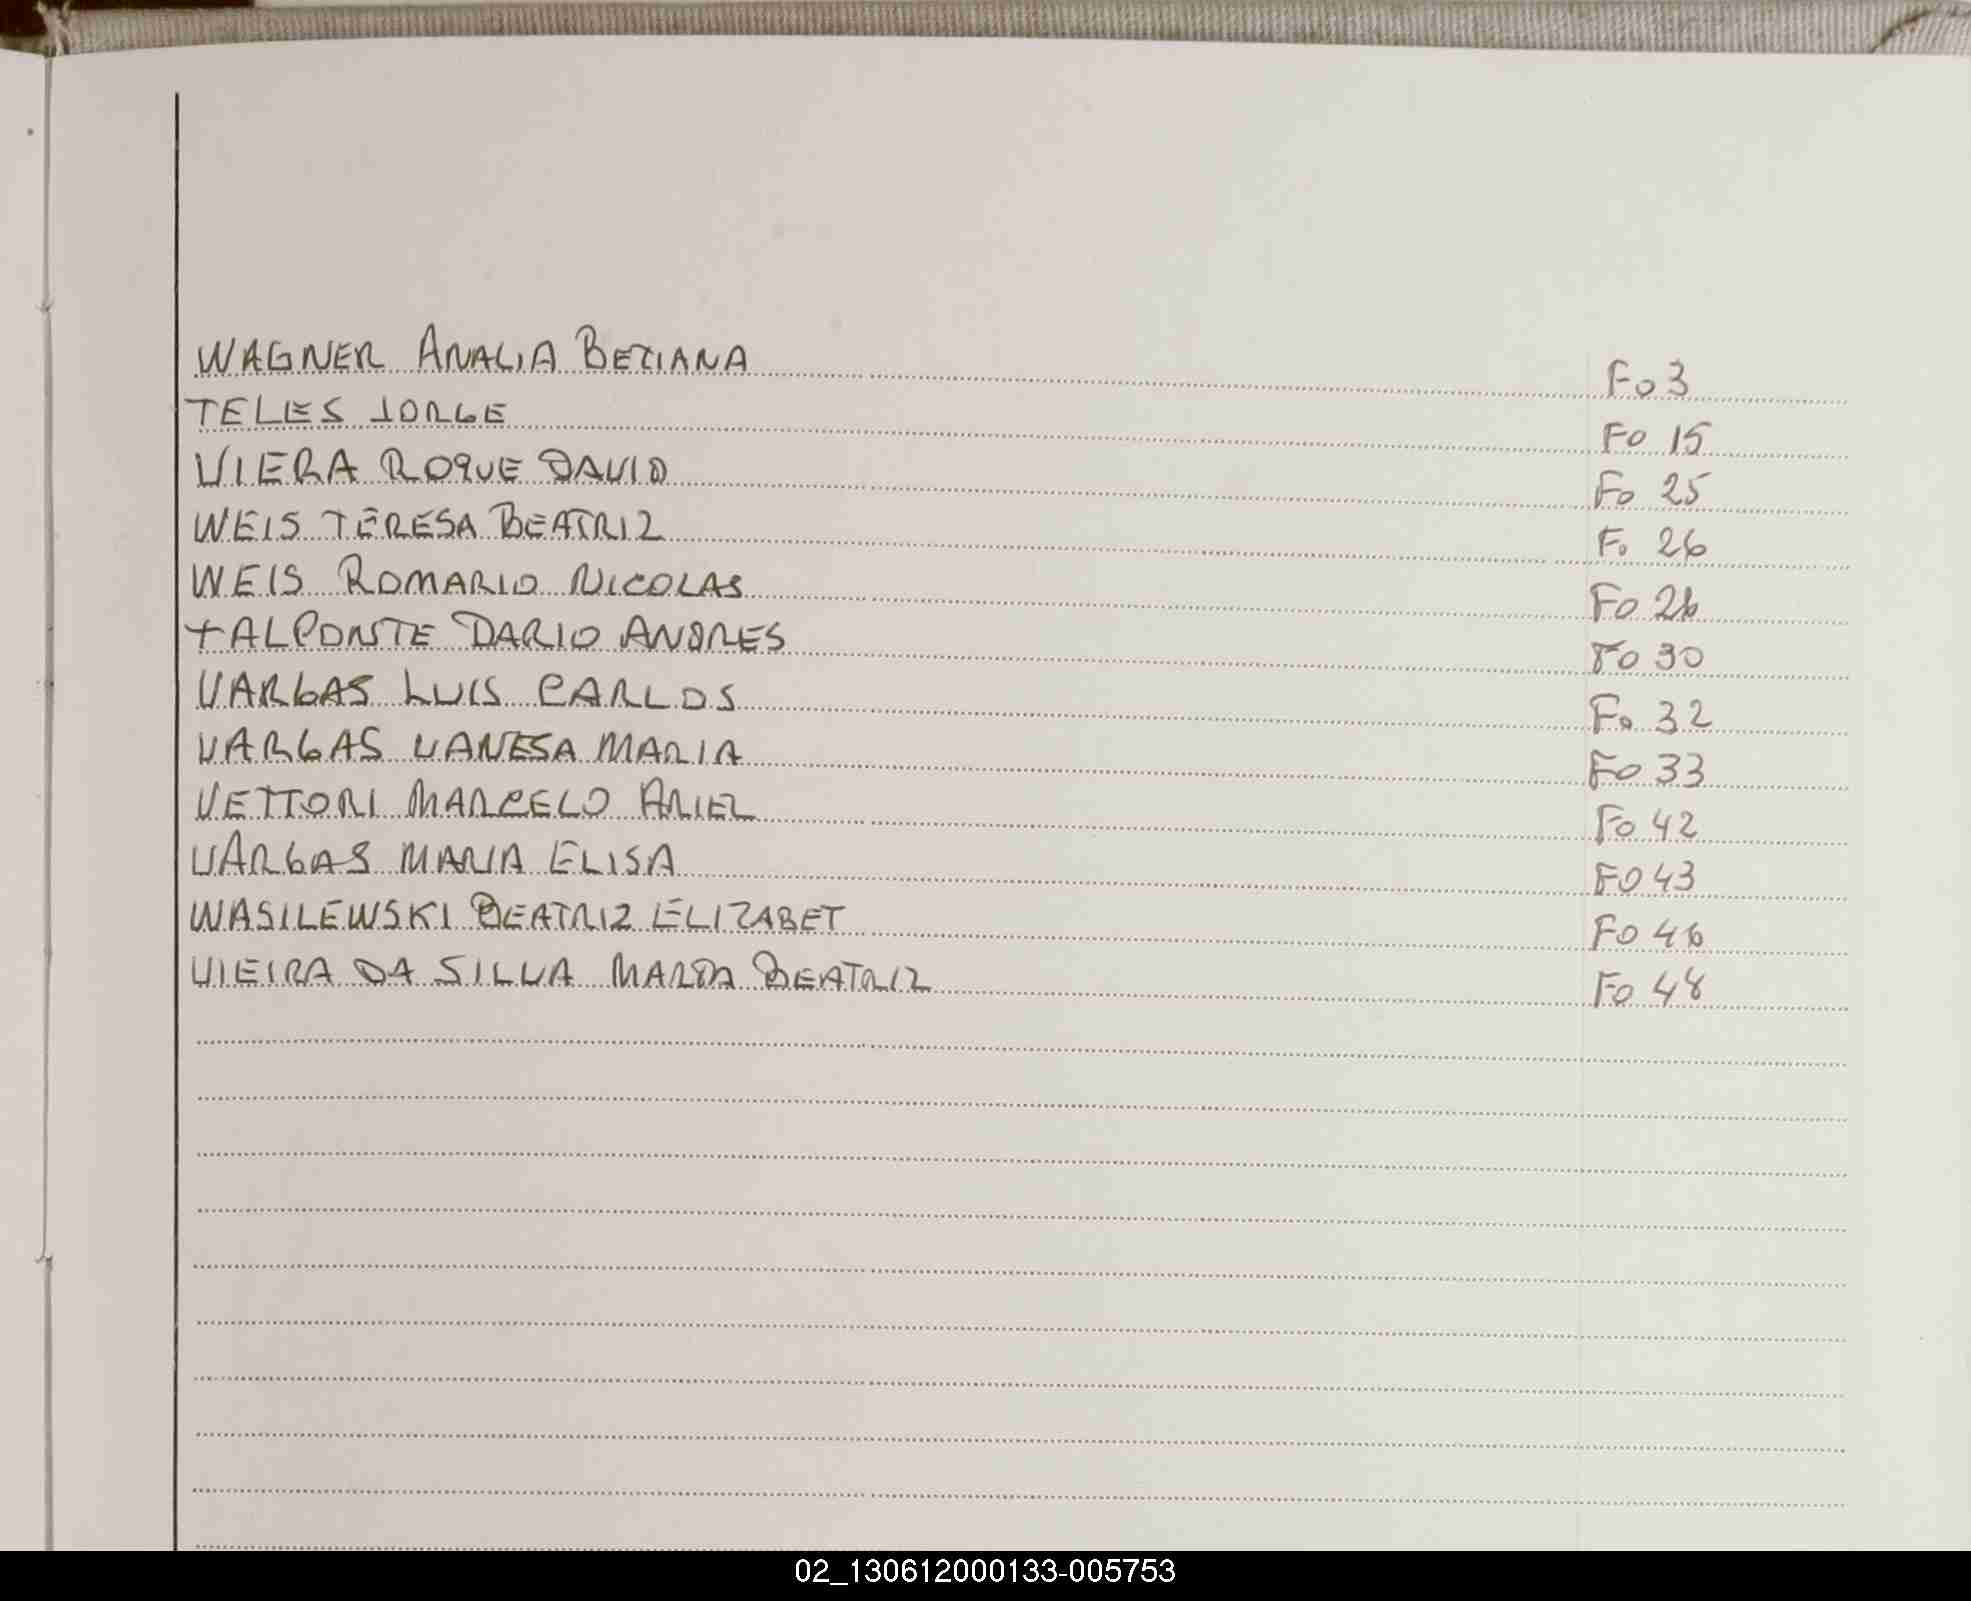 WAGNER ANALIA BETIANA Fo 3
TELES JORGE Fo 15
VIERA ROQUE DAVID Fo 25
WEIS TERESA BEATRIZ Fo 26
WEIS ROMARIO NICOLAS Fo 26
TALPONTE DARIO ANDRES Fo 30
VARGAS LUIS CARLOS Fo 32
VARGAS VANESA MARIA Fo 33
VETTORI MARCELO ARIEL Fo 42
VARGAS MARIA ELISA Fo 43
WASILEWSKI BEATRIZ ELIZABET Fo 46
VIEIRA DA SILVA MARTA BEATRIZ Fo 48
02_130612000133-005753